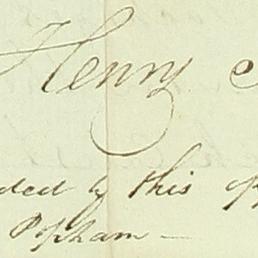 Henry
ded by this
Popham —